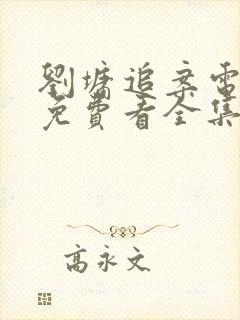 劉墉追案電
免費看全集
高永文